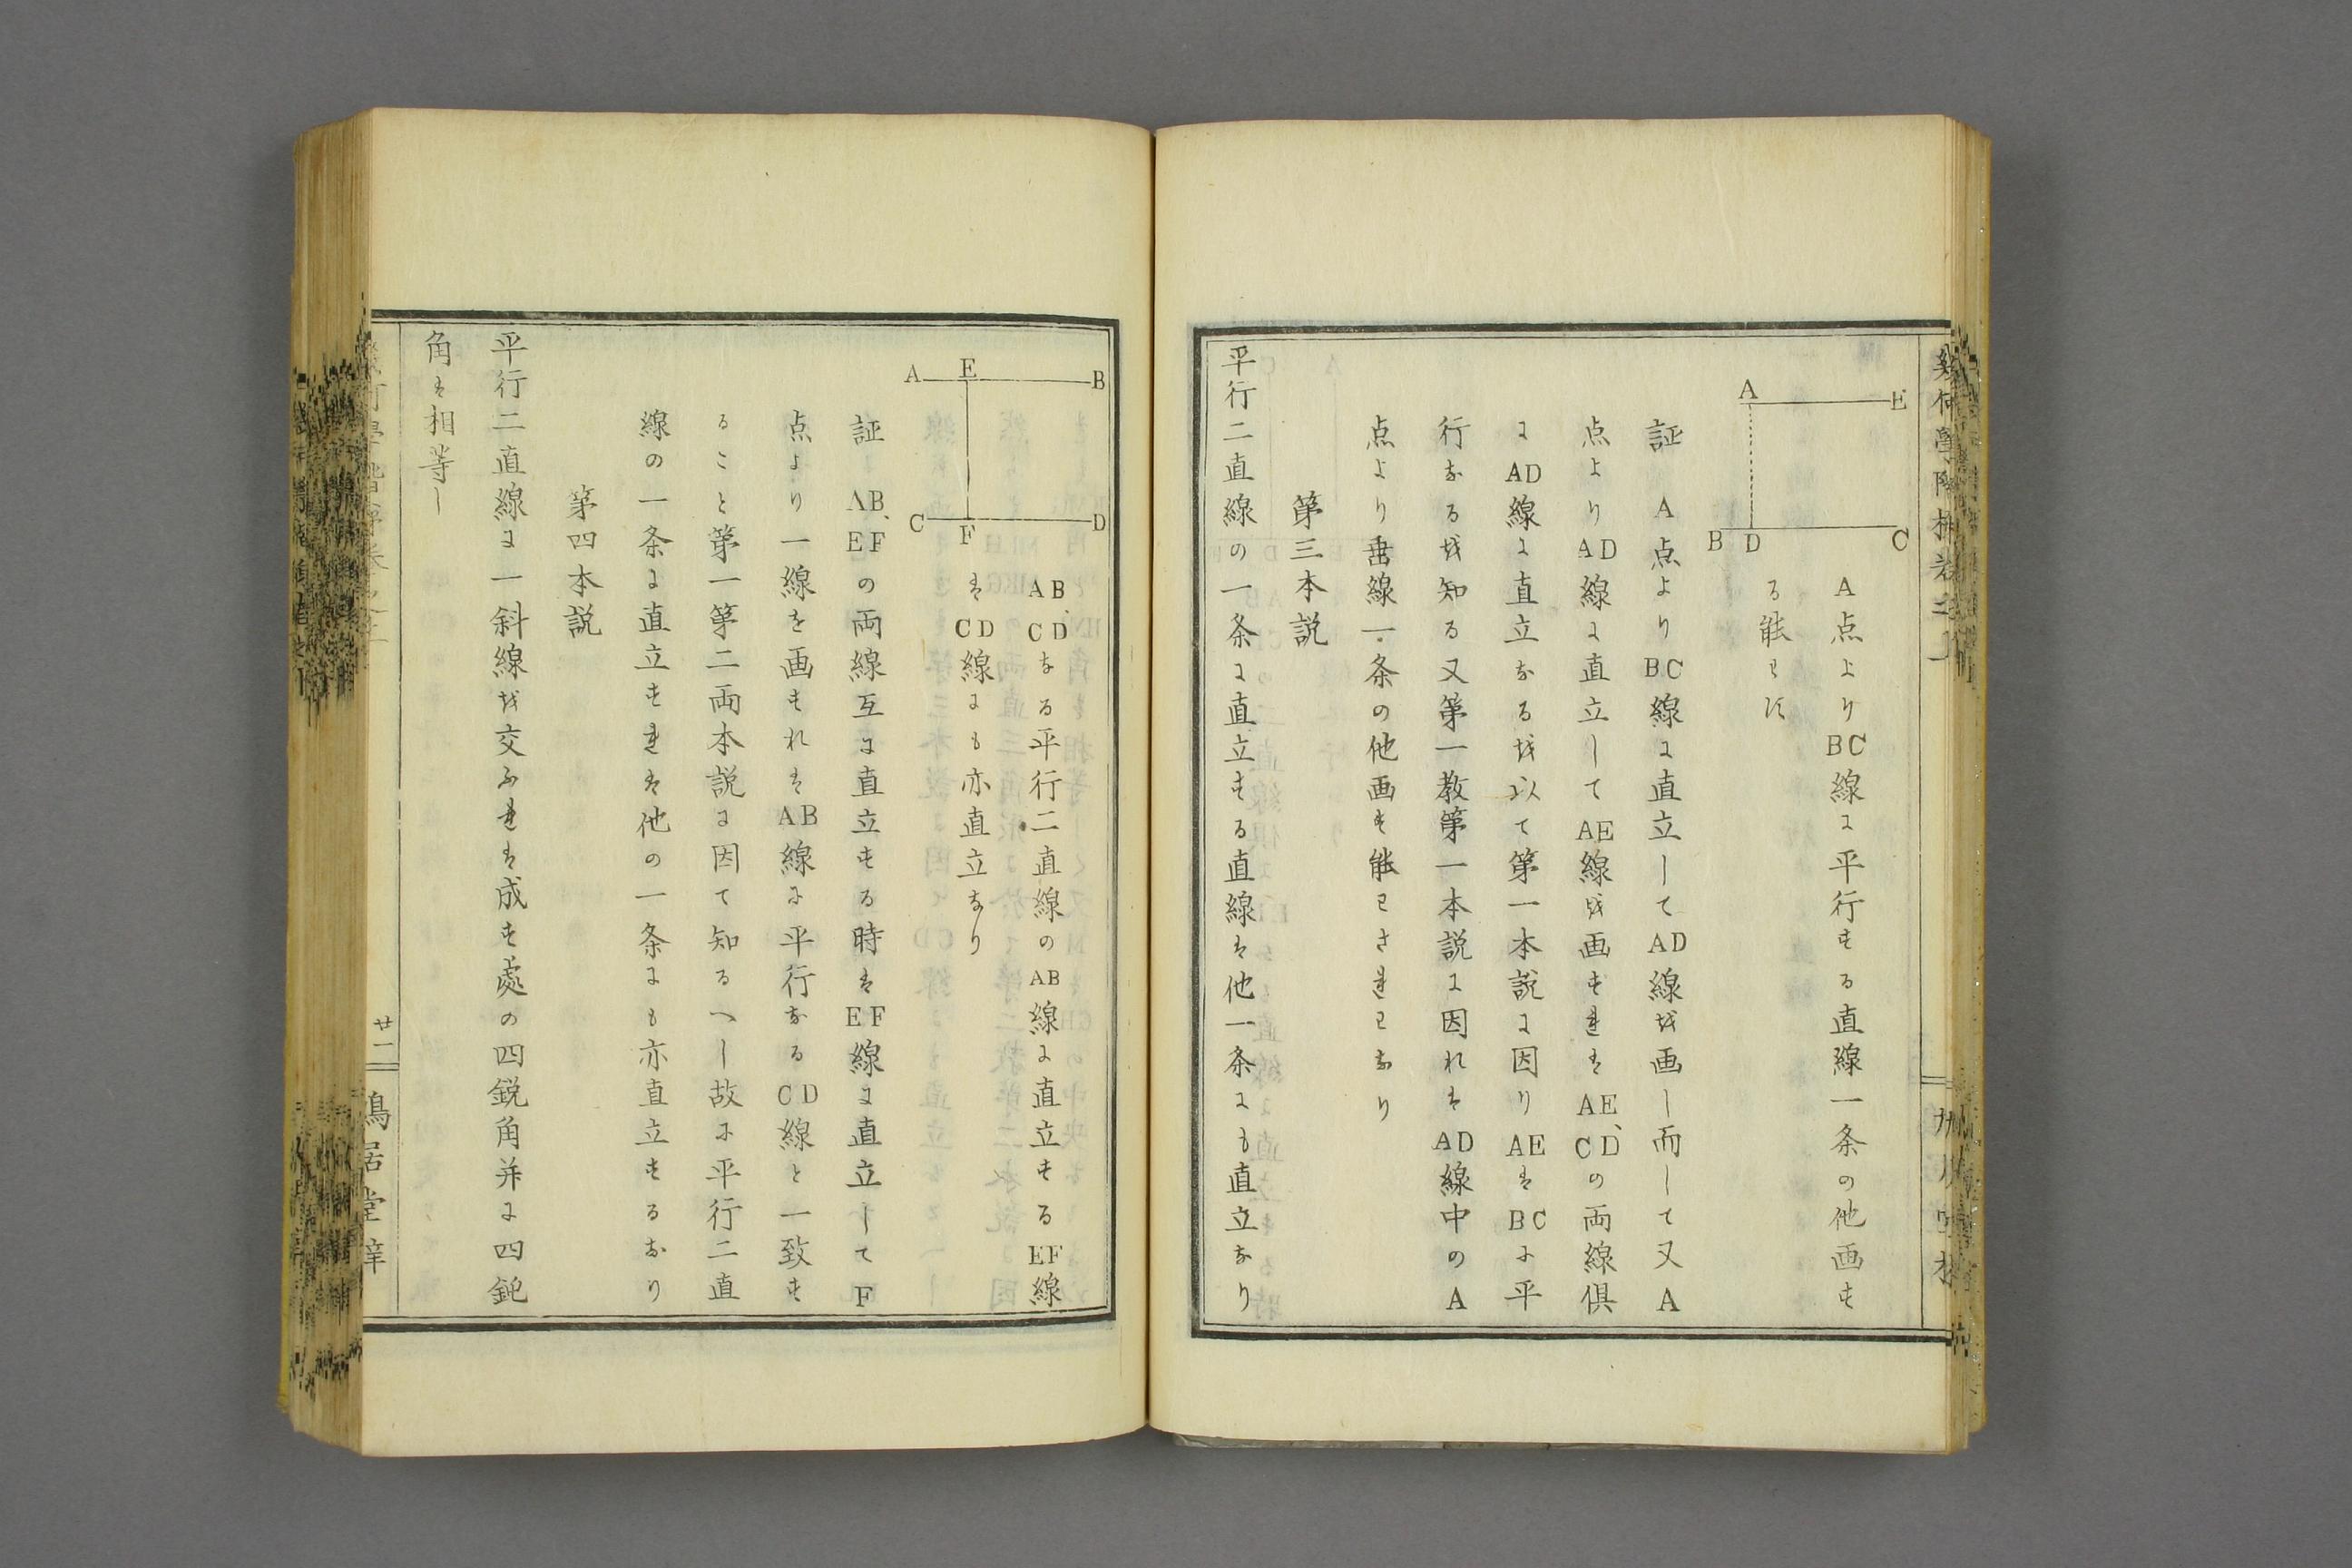 A
E
B D
C
A点よりBC線に平行する直線一条の他画す
る能わず
証 A点よりBC線に直立してAD線を画し而して又A
点よりAD線に直立してAE線を画すれはAE、CDの両線倶
にAD線に直立なるを以て第一本説に因りAEはBCに平
行なるを知る又第一教第一本説に因れはAD線中のA
点より垂線一条の他画す能わされはなり
第三本説
平行二直線の一条に直立する直線は他一条にも直立なり
A
E
B
C
F
D
AB、CDなる平行二直線のAB線に直立するEF線
はCD線にも亦直立なり
証 AB、EFの両線互に直立する時はEF線に直立してF
点より一線を画すれはAB線に平行なるCD線と一致す
ること第一第二両本説に因て知るへし故に平行二直
線の一条に直立すれは他の一条にも亦直立するなり
第四本説
平行二直線に一斜線を交ふれは成す處の四鋭角并に四鈍
角は相等し
廿二